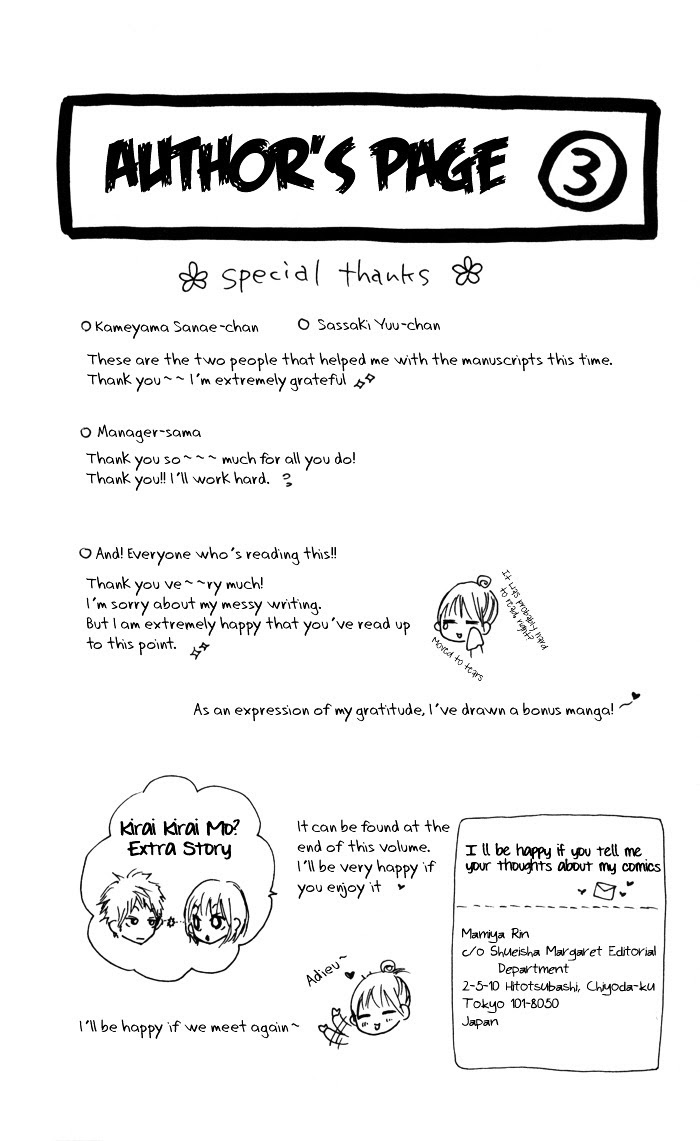 AUTHOR'S PAGE 3
special thanks
Kameyama Sanae-chan
Sassaki Yuu-chan
These are the two people that helped me with the manuscripts this time.
Thank you~~ I'm extremely grateful
Manager-sama
Thank you so~~~ much for all you do!
Thank you!! I'll work hard.
And! Everyone who's reading this!!
Thank you ve~~ry much!
I'm sorry about my messy writing.
But I am extremely happy that you've read up
to this point.
It was probably hard
to read, right?
Moved to tears
As an expression of my gratitude, I've drawn a bonus manga!
Kirai Kirai Mo?
Extra Story
It can be found at the
end of this volume.
I'll be very happy if
you enjoy it
Adieu~
I'll be happy if we meet again~
I ll be happy if you tell me
your thoughts about my comics
Mamiya Rin
c/o Shueisha Margaret Editorial
Department
2-5-10 Hitotsubashi, Chiyoda-ku
Tokyo 101-8050
Japan